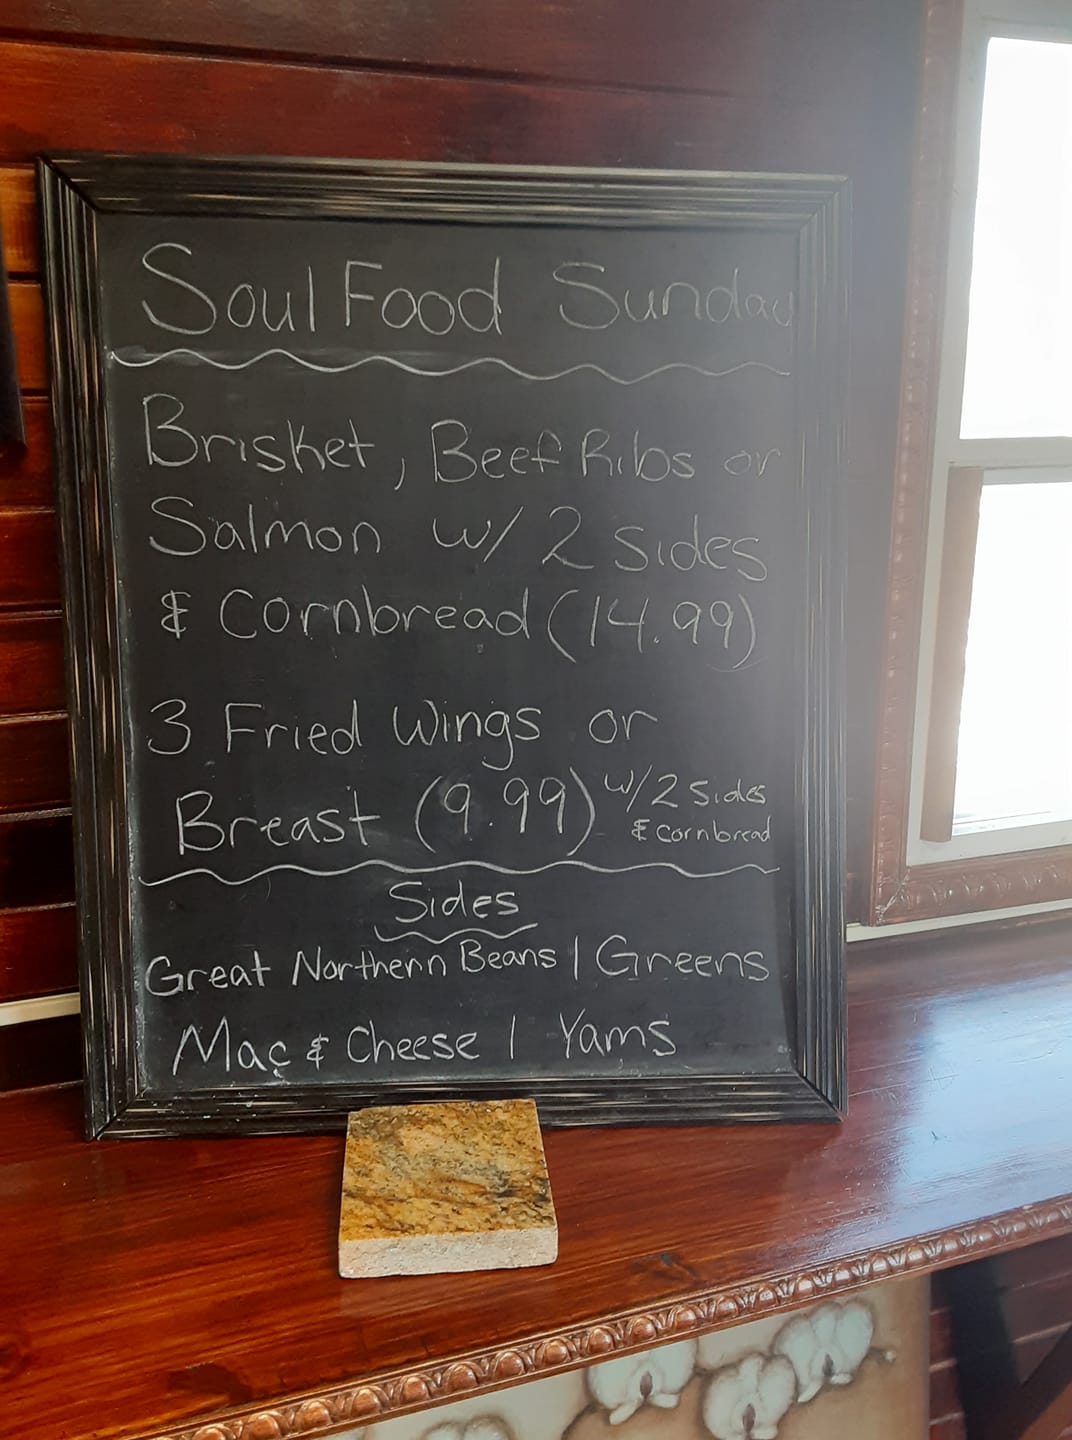 Soul Food Sunday
Brisket, Beef Ribs or
Salmon w/ 2 sides
& Cornbread (14.99)
3 Fried Wings or
Breast (9.99) w/ 2 sides
& cornbread
Sides
Great Northern Beans | Greens
Mac & Cheese | Yams